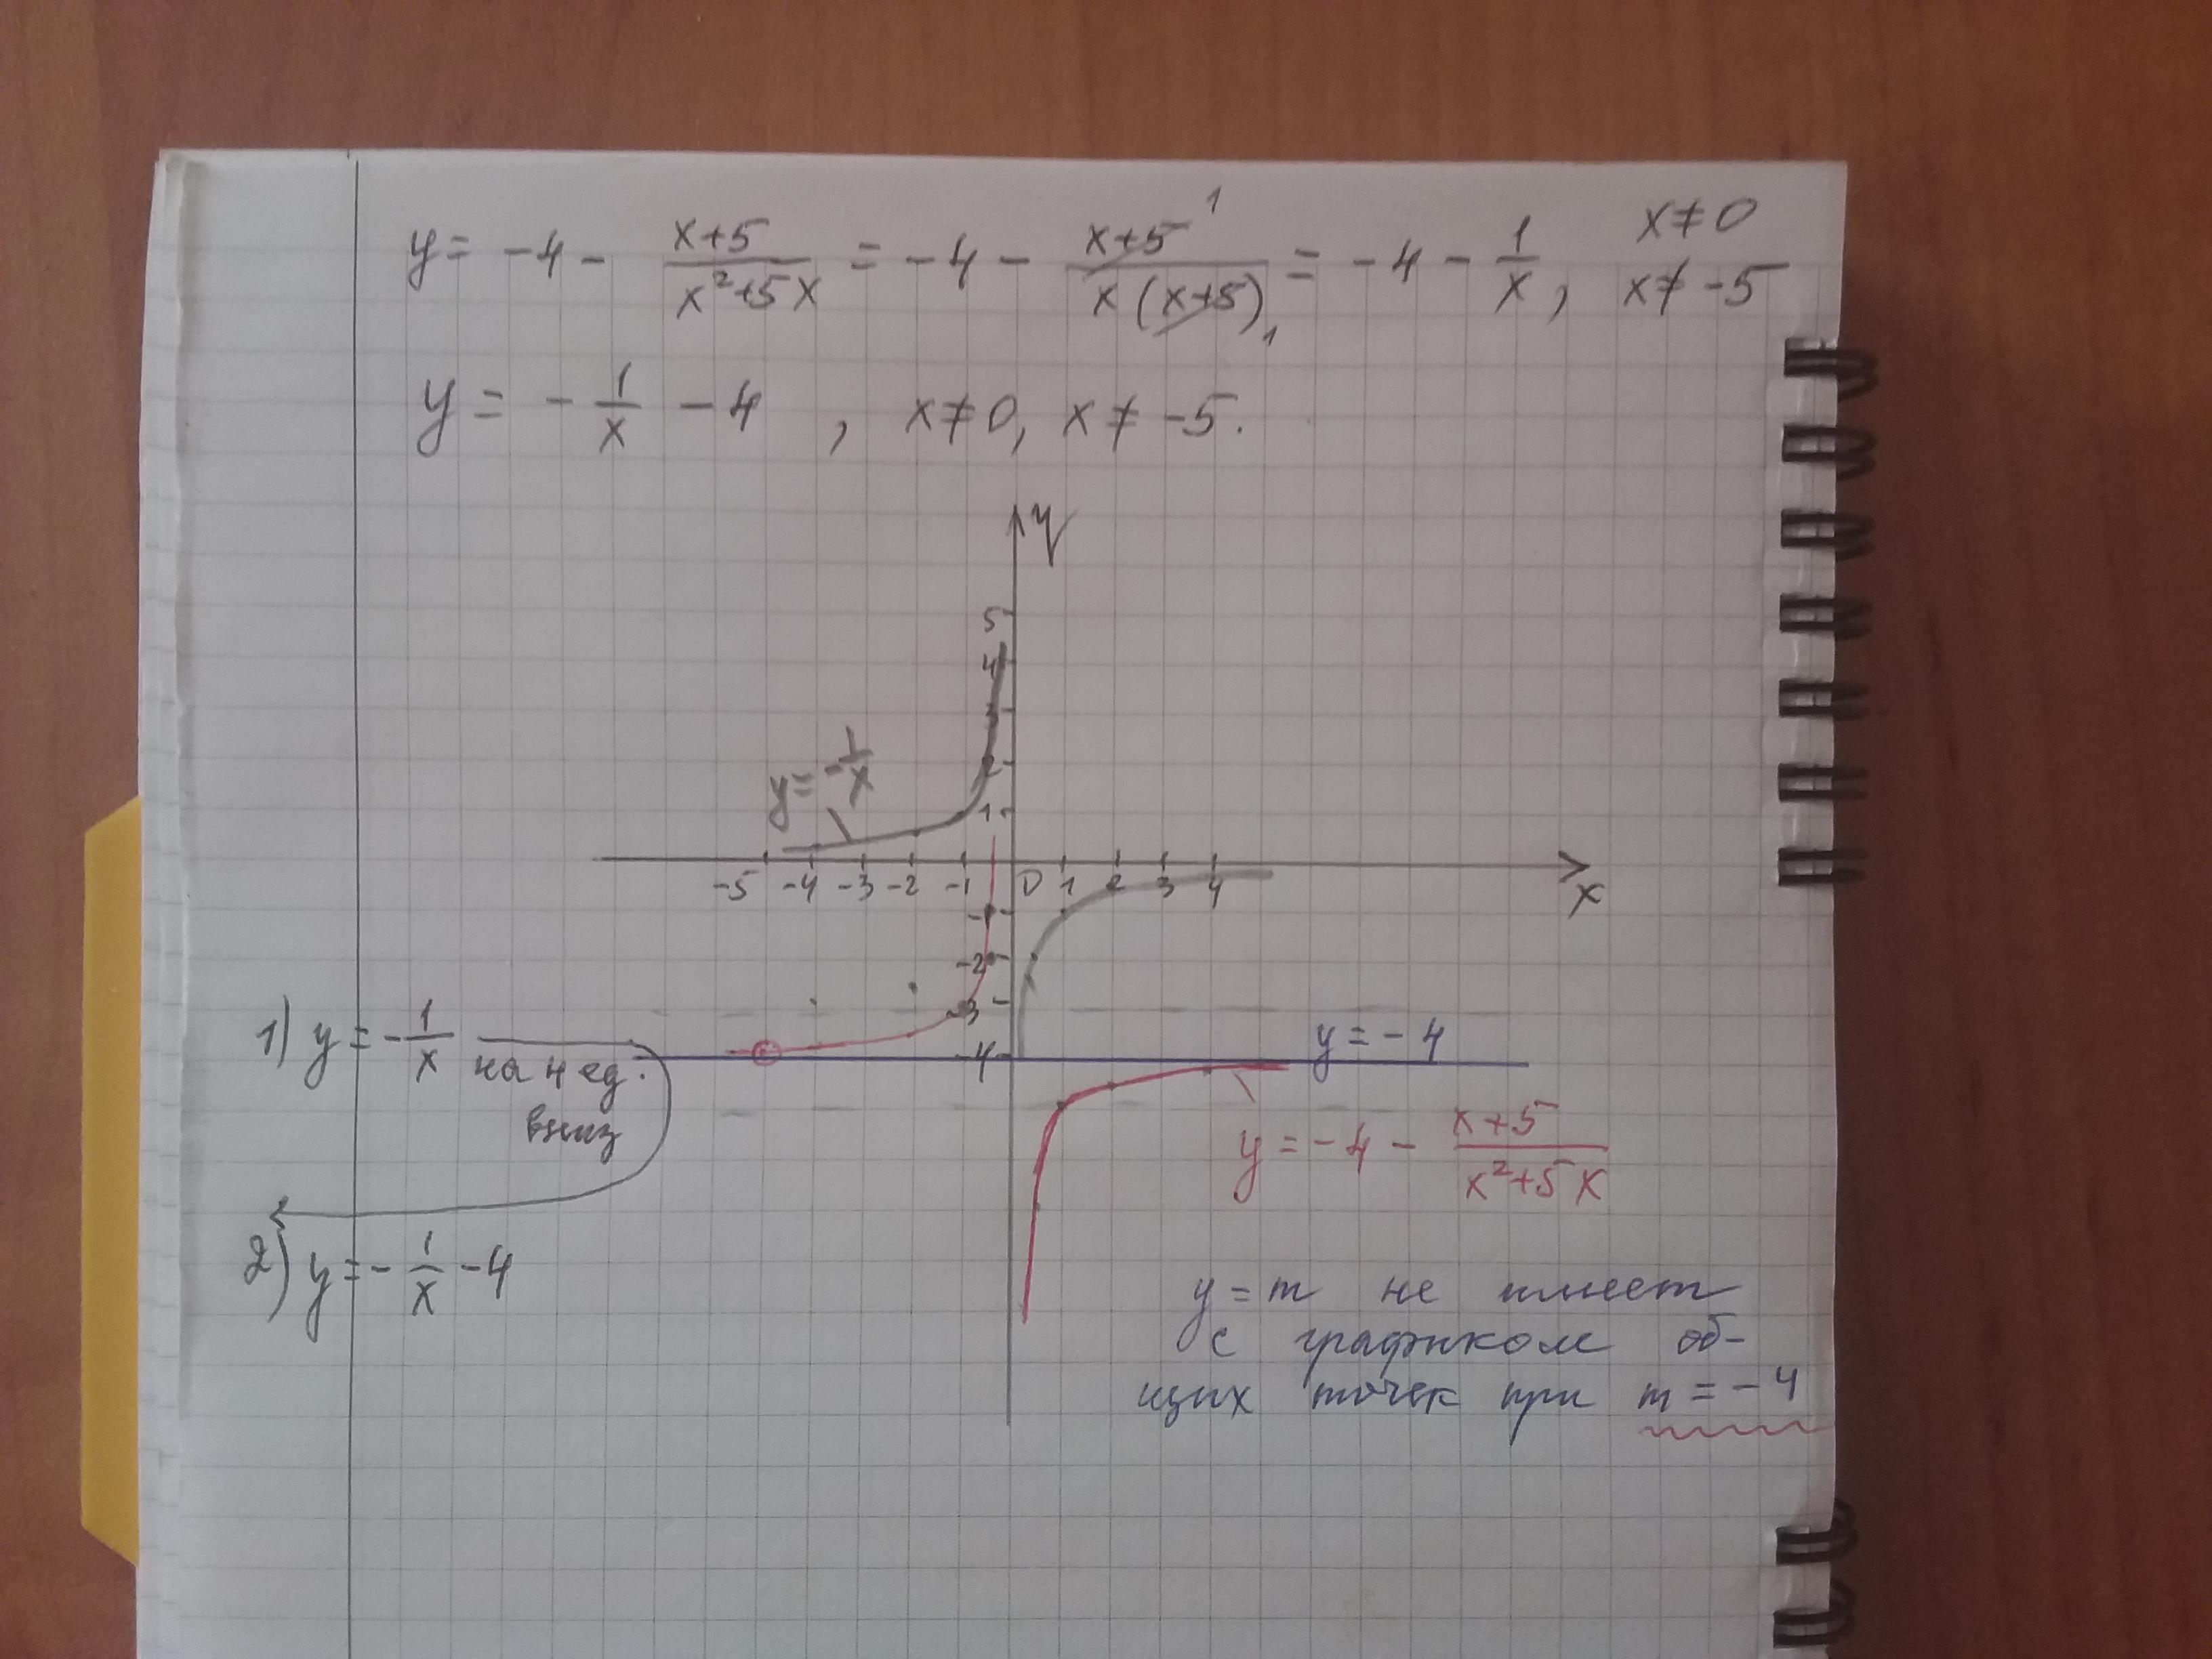 y = -4 - (x+5)/(x²+5x) = -4 - (x+5)/(x(x+5)) = -4 - 1/x, x≠0 x≠-5
1
1
y = -1/x - 4, x≠0, x≠-5.
y
5
4
3
2
1
y = -1/x
-5 -4 -3 -2 -1 0 1 2 3 4
x
-1
-2
-3
-4
y = -4
1) y = -1/x на 4 ед.
вниз
y = -4 - (x+5)/(x²+5x)
2) y = -1/x - 4
y = m не имеет
с графиком об-
щих точек при m = -4